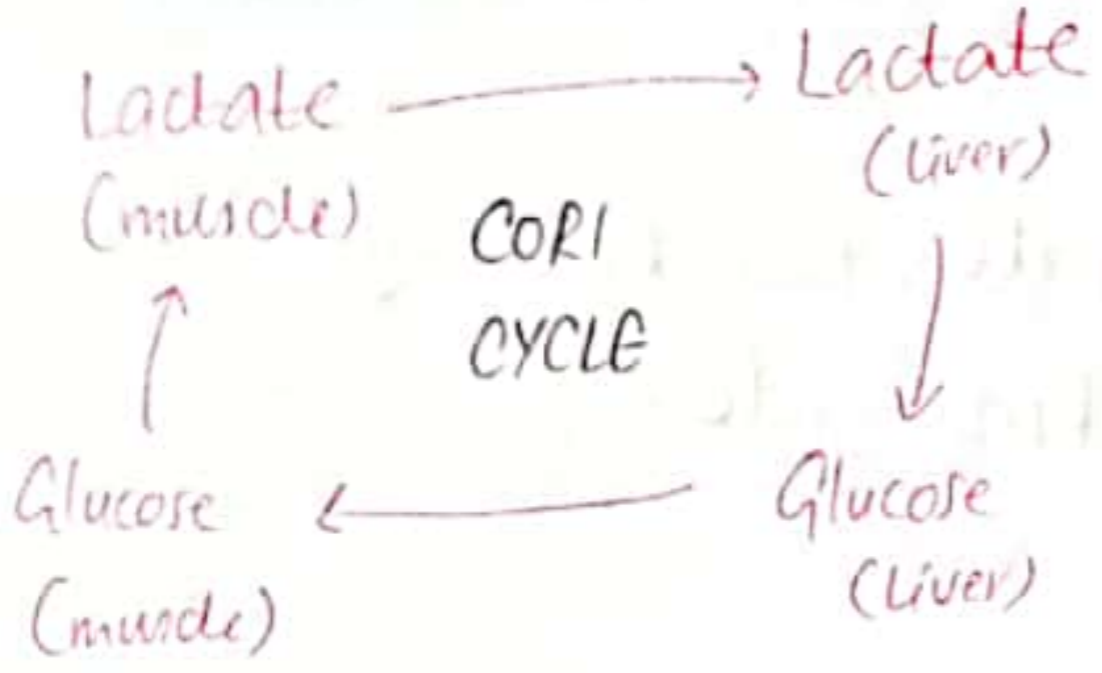 Lactate
(muscle)
Lactate
(liver)
CORI
CYCLE
Glucose
(muscle)
Glucose
(Liver)